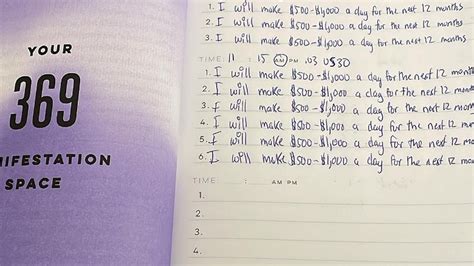 YOUR
369
IFESTATION
SPACE
1. I will make $500-$1,000 a day for the next 12 months
2. I will make $500-$1,000 a day for the next 12 months
3. I will make $500-$1,000 a day for the next 12 months
TIME: 11 : 15 AM PM
1. I will make $500-$1,000 a day for the next 12 mont
2. I will make $500-$1,000 a day for the next 12 month
3. I will make $500-$1,000 a day for the next 12 mont
4. I will make $500-$1,000 a day for the next 12 mont
5. I will make $500-$1,000 a day for the next 12 mont
6. I will make $500-$1,000 a day for the next 12 mon
TIME : AM PM
1.
2.
3.
4.